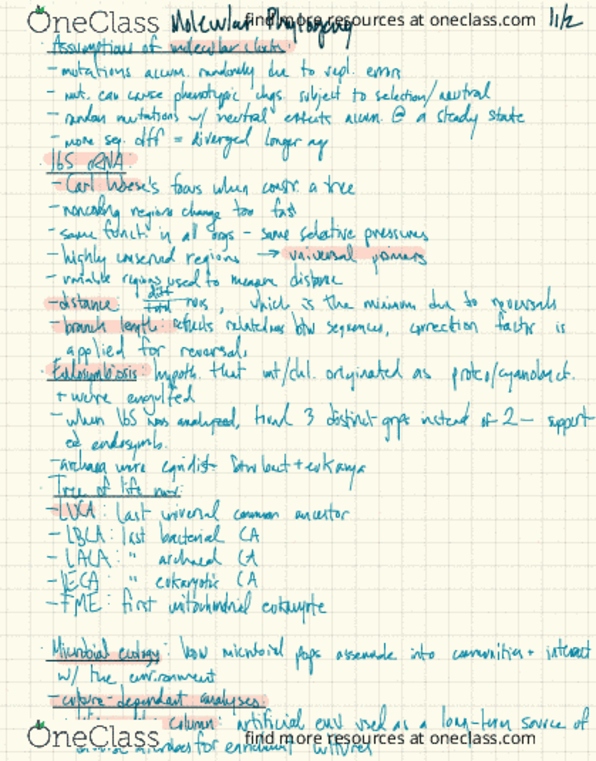 OneClass
find more resources at oneclass.com
Molecular Phylogeny
11/2
Assumptions of molecular clocks:
- mutations accum. randomly due to repl. errors
- mut. can cause phenotypic chgs. subject to selection/neutral
- random mutations w/ neutral effects accum @ a steady state
- more seq. diff = diverged longer ago
16S rRNA:
- Carl Woese's focus when constr. a tree
- noncoding regions change too fast
- same funct. in all orgs - same selective pressures
- highly conserved regions → universal primers
- variable regions used to measure distance
- distance: diff/total , which is the minimum due to reversals
- branch length: reflects relatedness btw sequences, correction factor is
applied for reversals
Endosymbiosis: hypoth. that mt/chl. originated as proteo/cyanobact.
+ were engulfed
- when 16S was analyzed, found 3 distinct grps instead of 2 - support
ed endosymb.
- archaea were equidist. btw bact + eukarya
Tree of life
- LUCA: last universal common ancestor
- LBCA: last bacterial CA
- LACA: " archaeal CA
- LECA: " eukaryotic CA
- FME: first mitochondrial eukaryote
Microbial ecology: how microbial pops assemble into communities + interact
w/ the environment
- culture-dependent analyses:
column: artificial env used as a long-term source of
microbes for enrichment cultures
OneClass
find more resources at oneclass.com